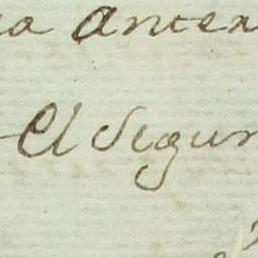 a Anter
El Segun